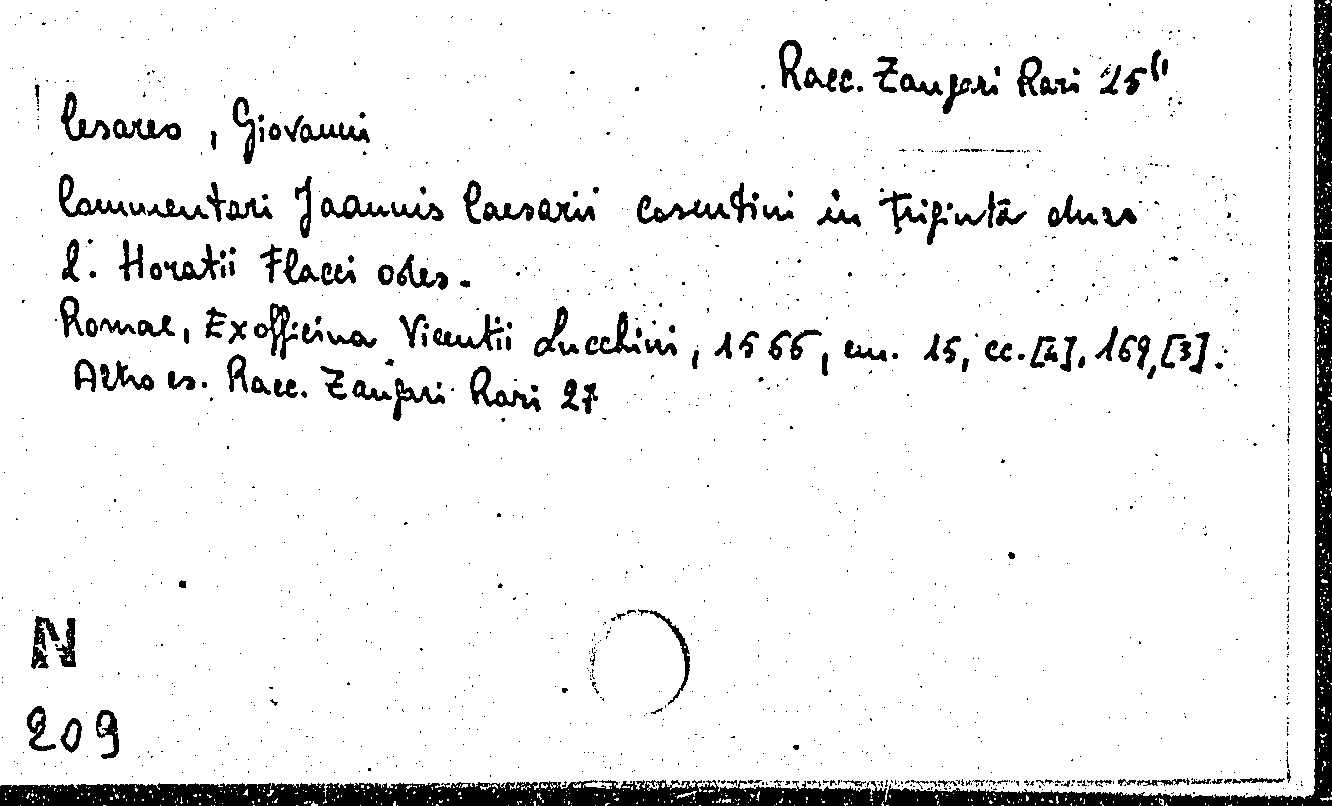 Racc. Zangari Rari 25(1
Cesareo, Giovanni
Commentari Joannis Caesarii cosentini in trigintã duas
Q. Horatii Flacci odes.
Romae, Ex officina Vicentii Lucchini, 1566, cm. 15, cc. [4], 169, [3].
Altro es. Racc. Zangari Rari 27
N
209